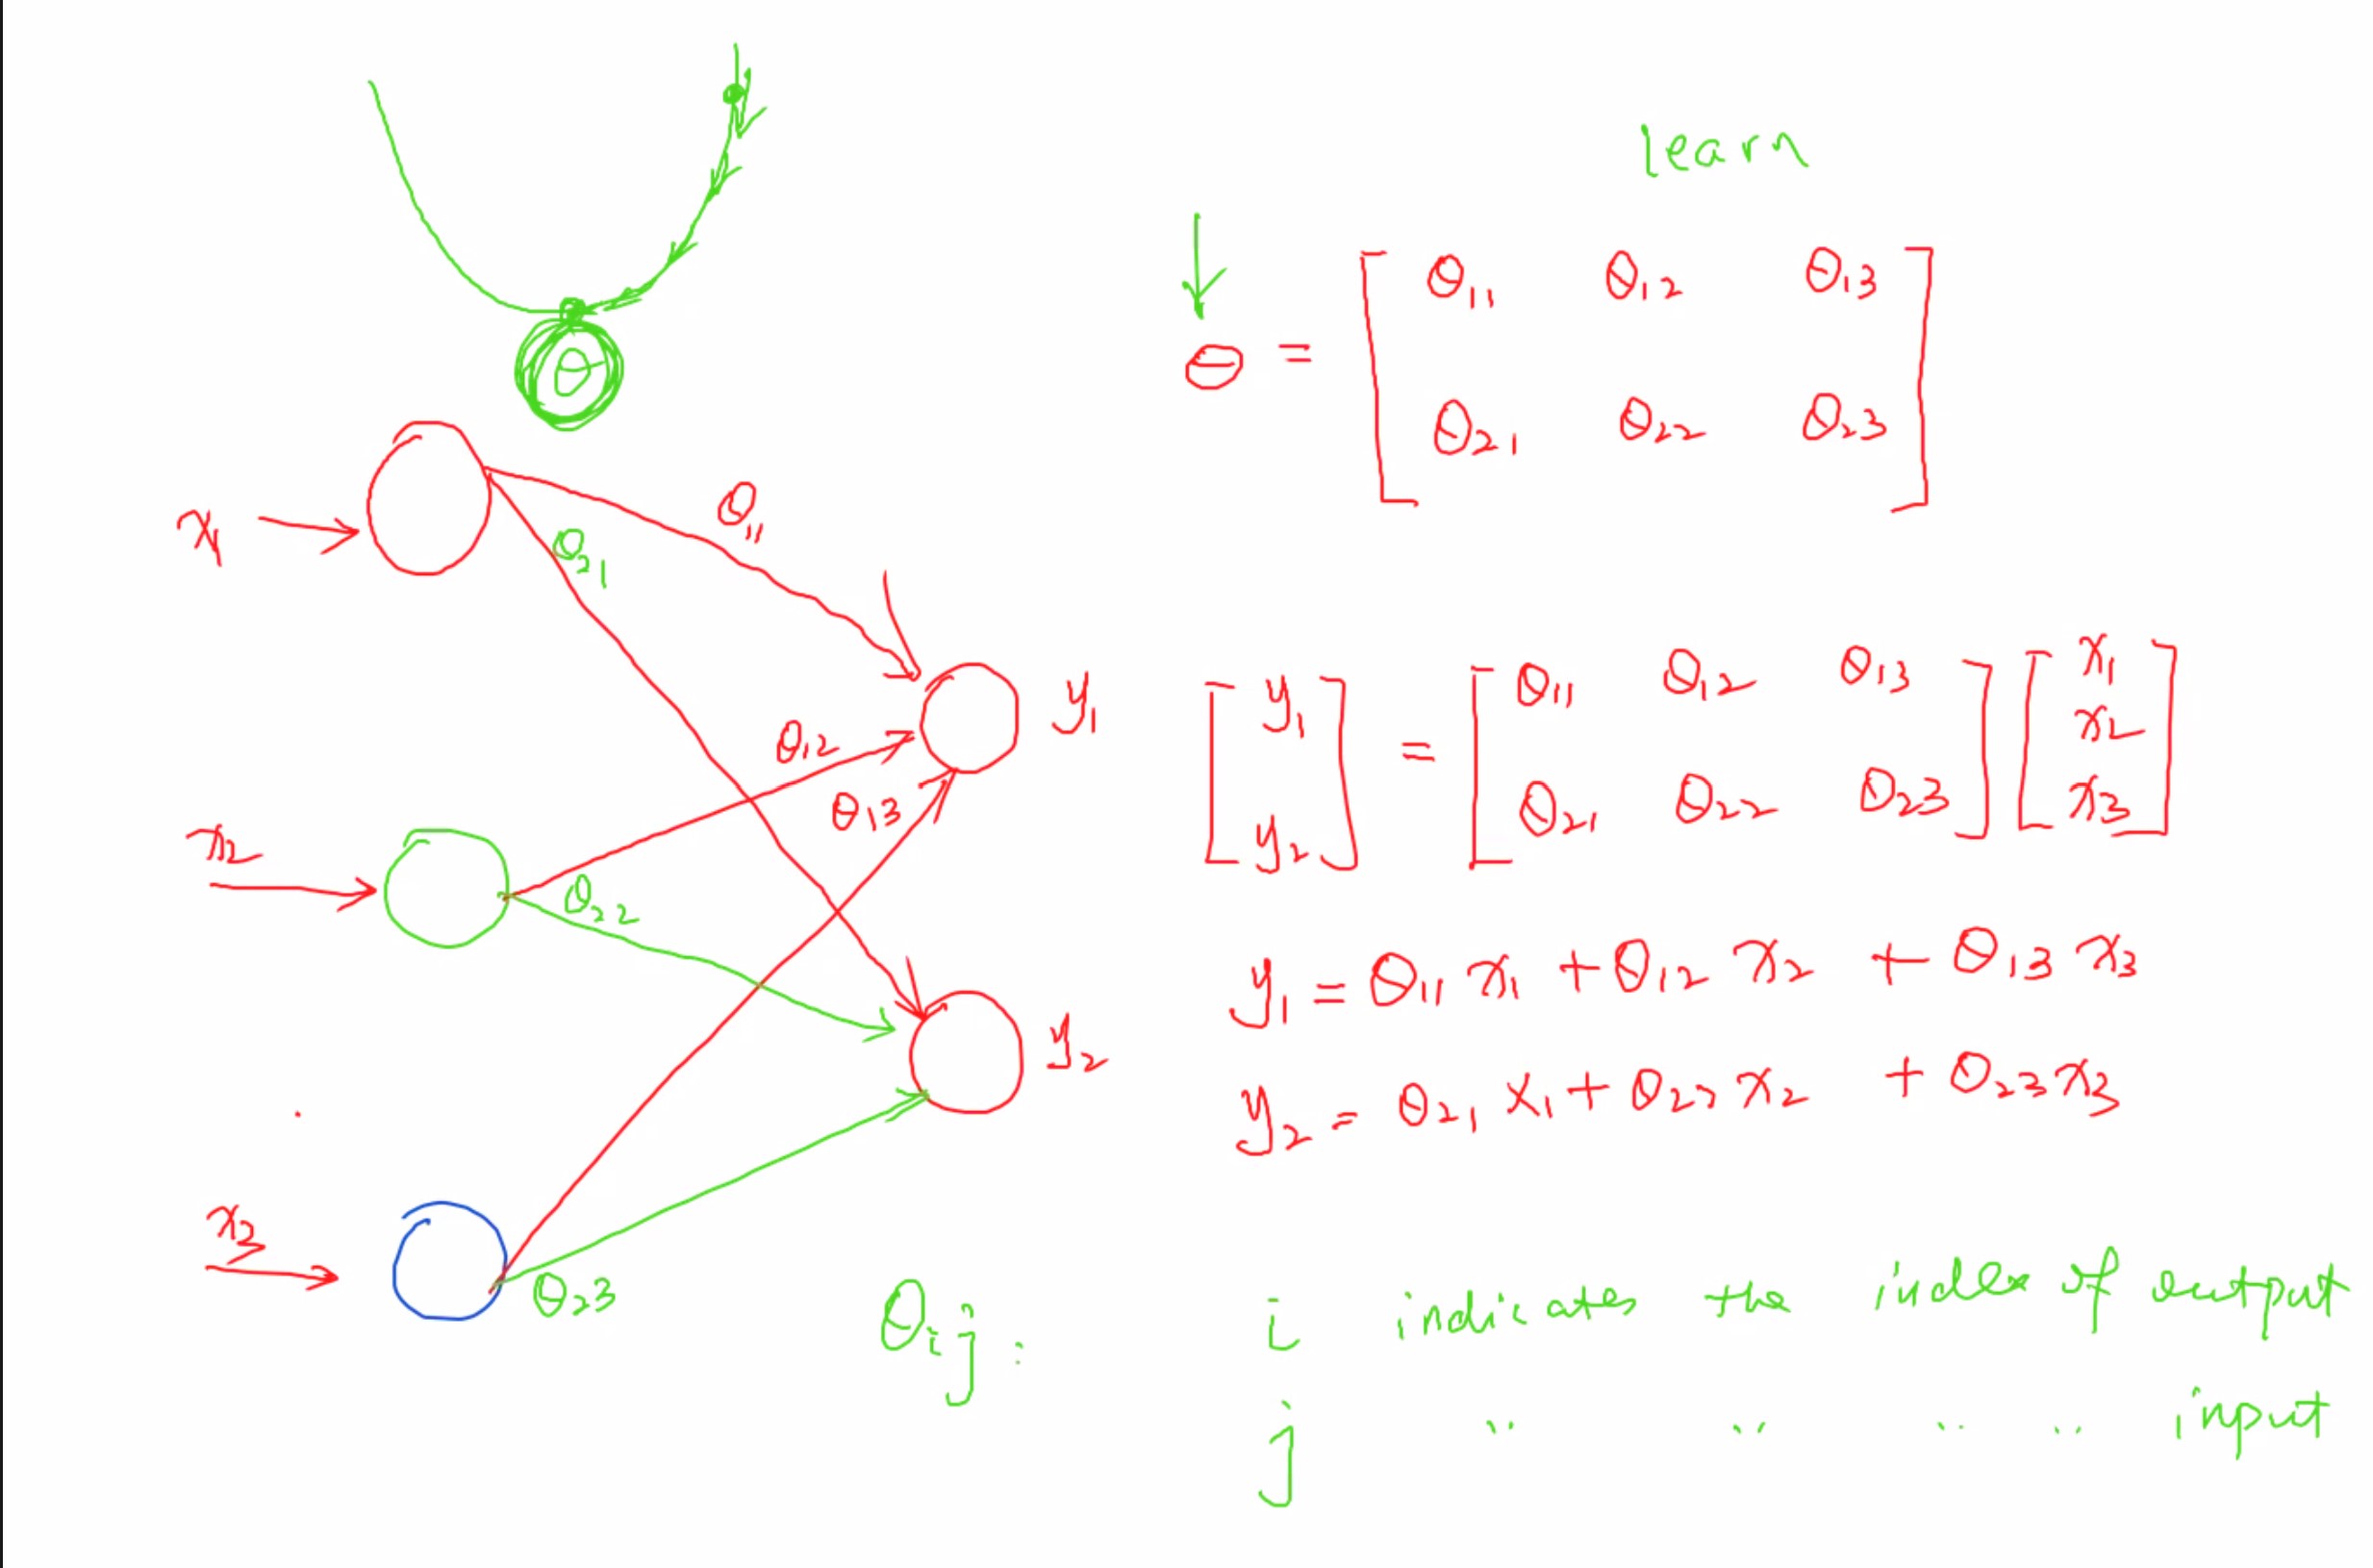 learn
θ
θ = [ θ₁₁ θ₁₂ θ₁₃
θ₂₁ θ₂₂ θ₂₃ ]
x₁
θ₁₁
θ₂₁
y₁
θ₁₂
θ₁₃
x₂
θ₂₂
y₂
x₃
θ₂₃
[ y₁
y₂ ] = [ θ₁₁ θ₁₂ θ₁₃
θ₂₁ θ₂₂ θ₂₃ ] [ x₁
x₂
x₃ ]
y₁ = θ₁₁ x₁ + θ₁₂ x₂ + θ₁₃ x₃
y₂ = θ₂₁ x₁ + θ₂₂ x₂ + θ₂₃ x₃
θᵢⱼ : i indicates the index of output
j " " " " input